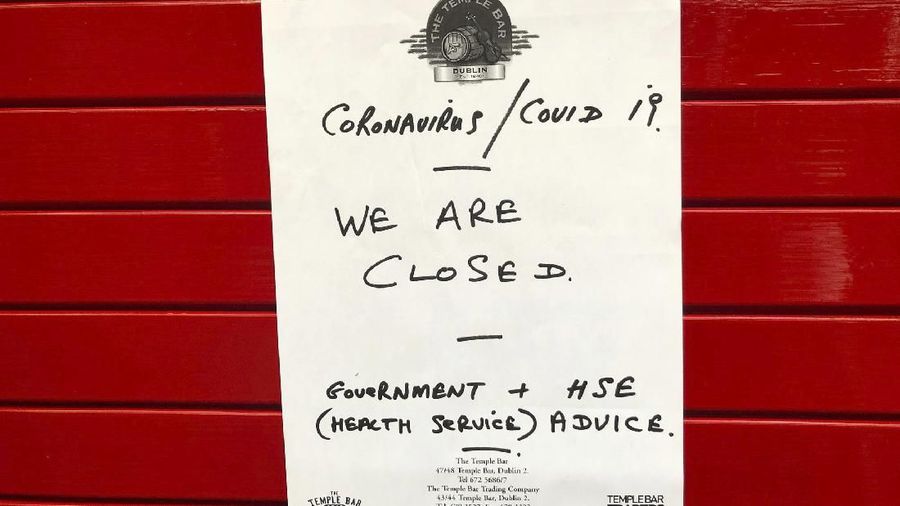 THE TEMPLE BAR
DUBLIN
CORONAVIRUS / COVID 19.
WE ARE
CLOSED.
GOVERNMENT + HSE
(HEALTH SERVICE) ADVICE.
The Temple Bar
47/48 Temple Bar, Dublin 2.
Tel 672 5686/7
The Temple Bar Trading Company
43/44 Temple Bar, Dublin 2.
THE
TEMPLE BAR
TEMPLE BAR
TRADERS